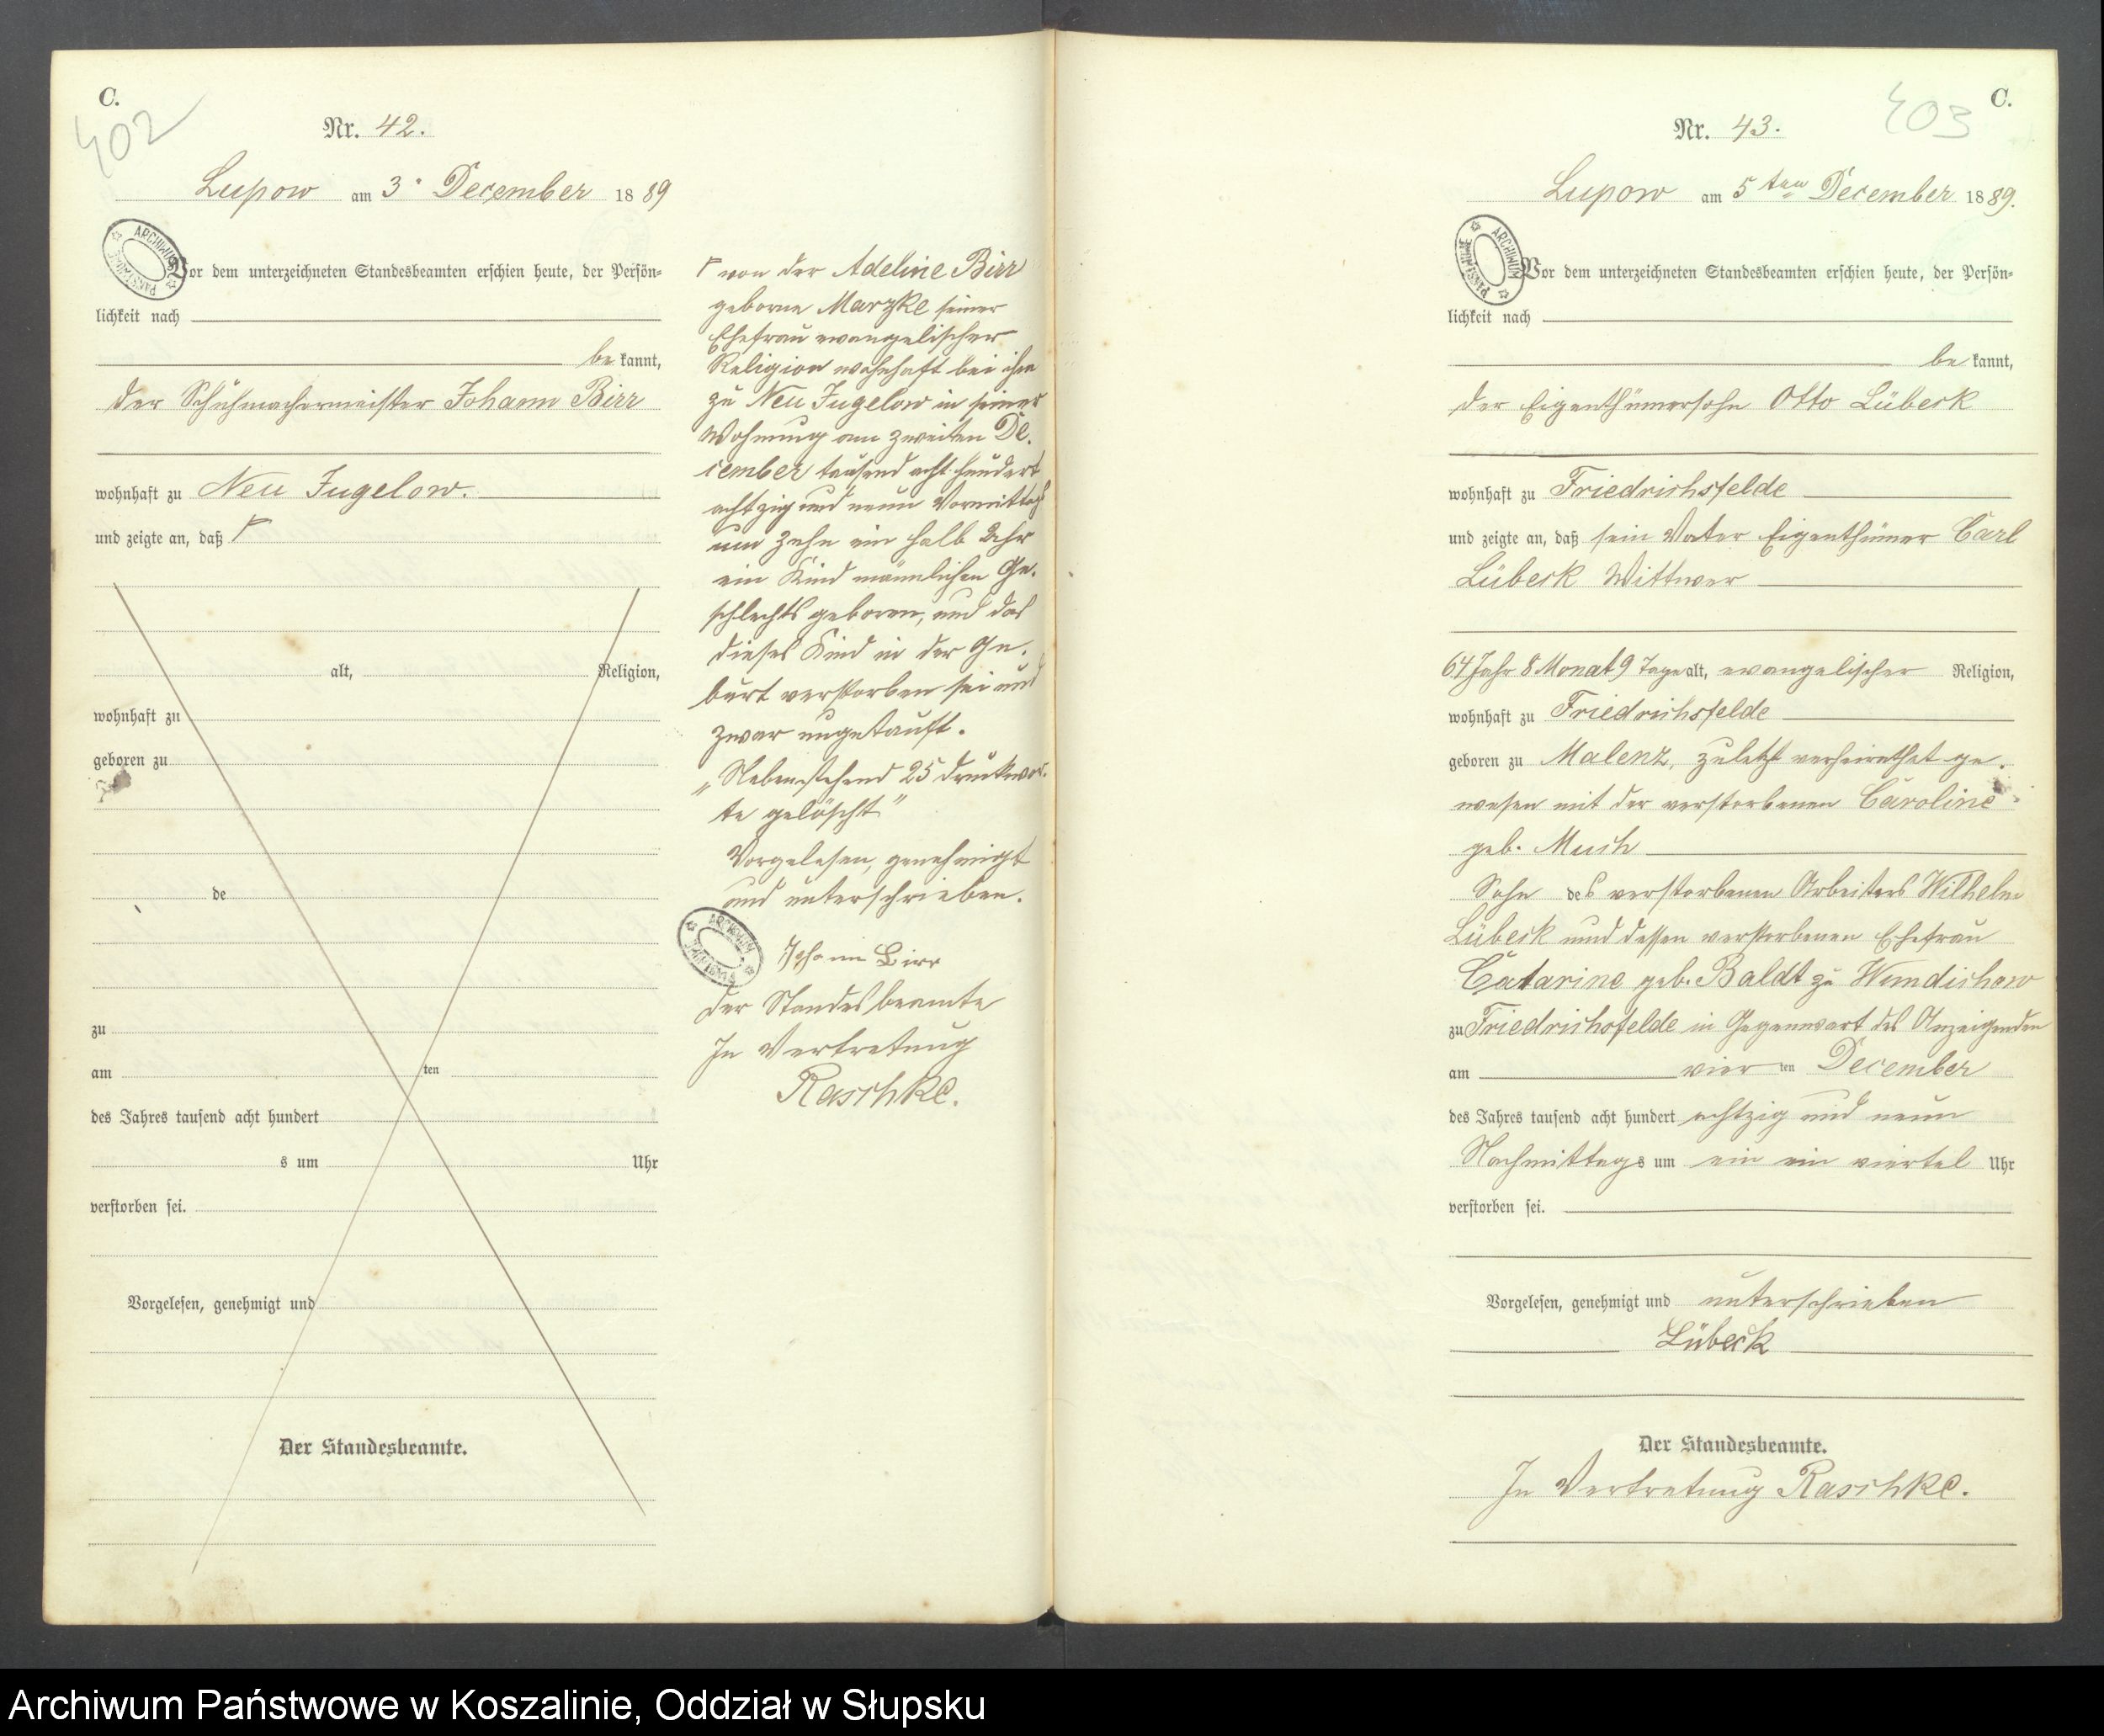 C.
402
Nr. 42.
Lupow am 3. December 1889
Vor dem unterzeichneten Standesbeamten erschien heute, der Persön-
lichkeit nach
be kannt,
der Schuhmachermeister Johann Birr
wohnhaft zu Neu Jugelow.
und zeigte an, daß
alt, Religion,
wohnhaft zu
geboren zu
de
zu
am ten
des Jahres tausend acht hundert
s um Uhr
verstorben sei.
Vorgelesen, genehmigt und
Der Standesbeamte.
von der Adeline Birr
geborne Marzke seiner
Ehefrau evangelischer
Religion wohnhaft bei ihm
zu Neu Jugelow in seiner
Wohnung am zweiten De.
cember tausend acht hundert
achtzig und neun Vormittags
um zehn ein halb Uhr
ein Kind männlichen Ge.
schlechts geboren, und das
dieses Kind in der Ge.
burt verstorben sei und
zwar ungetauft.
„Nebenstehend 25 Druckwor.
te gelöscht"
Vorgelesen, genehmigt
und unterschrieben.
ARCHIWUM PAŃSTWOWE
Johann Birr
Der Standesbeamte
In Vertretung
Raschke.
C.
403
Nr. 43.
Lupow am 5ten December 1889.
ARCHIWUM PAŃSTWOWE
Vor dem unterzeichneten Standesbeamten erschien heute, der Persön-
lichkeit nach
be kannt,
der Eigenthümersohn Otto Lübeck
wohnhaft zu Friedrichsfelde
und zeigte an, daß sein Vater Eigenthümer Carl
Lübeck Wittwer
64 Jahr 8 Monat 9 Tage alt, evangelischer Religion,
wohnhaft zu Friedrichsfelde
geboren zu Malenz, zuletzt verheirathet ge.
wesen mit der verstorbenen Caroline
geb. Much
Sohn des verstorbenen Arbeiters Wilhelm
Lübeck und dessen verstorbenen Ehefrau
Catarine geb. Baldt zu Wundichow
zu Friedrichsfelde in Gegenwart des Anzeigenden
am vier ten December
des Jahres tausend acht hundert achtzig und neun
Nachmittags um ein ein viertel Uhr
verstorben sei.
Vorgelesen, genehmigt und unterschrieben
Lübeck
Der Standesbeamte.
In Vertretung Raschke.
Archiwum Państwowe w Koszalinie, Oddział w Słupsku